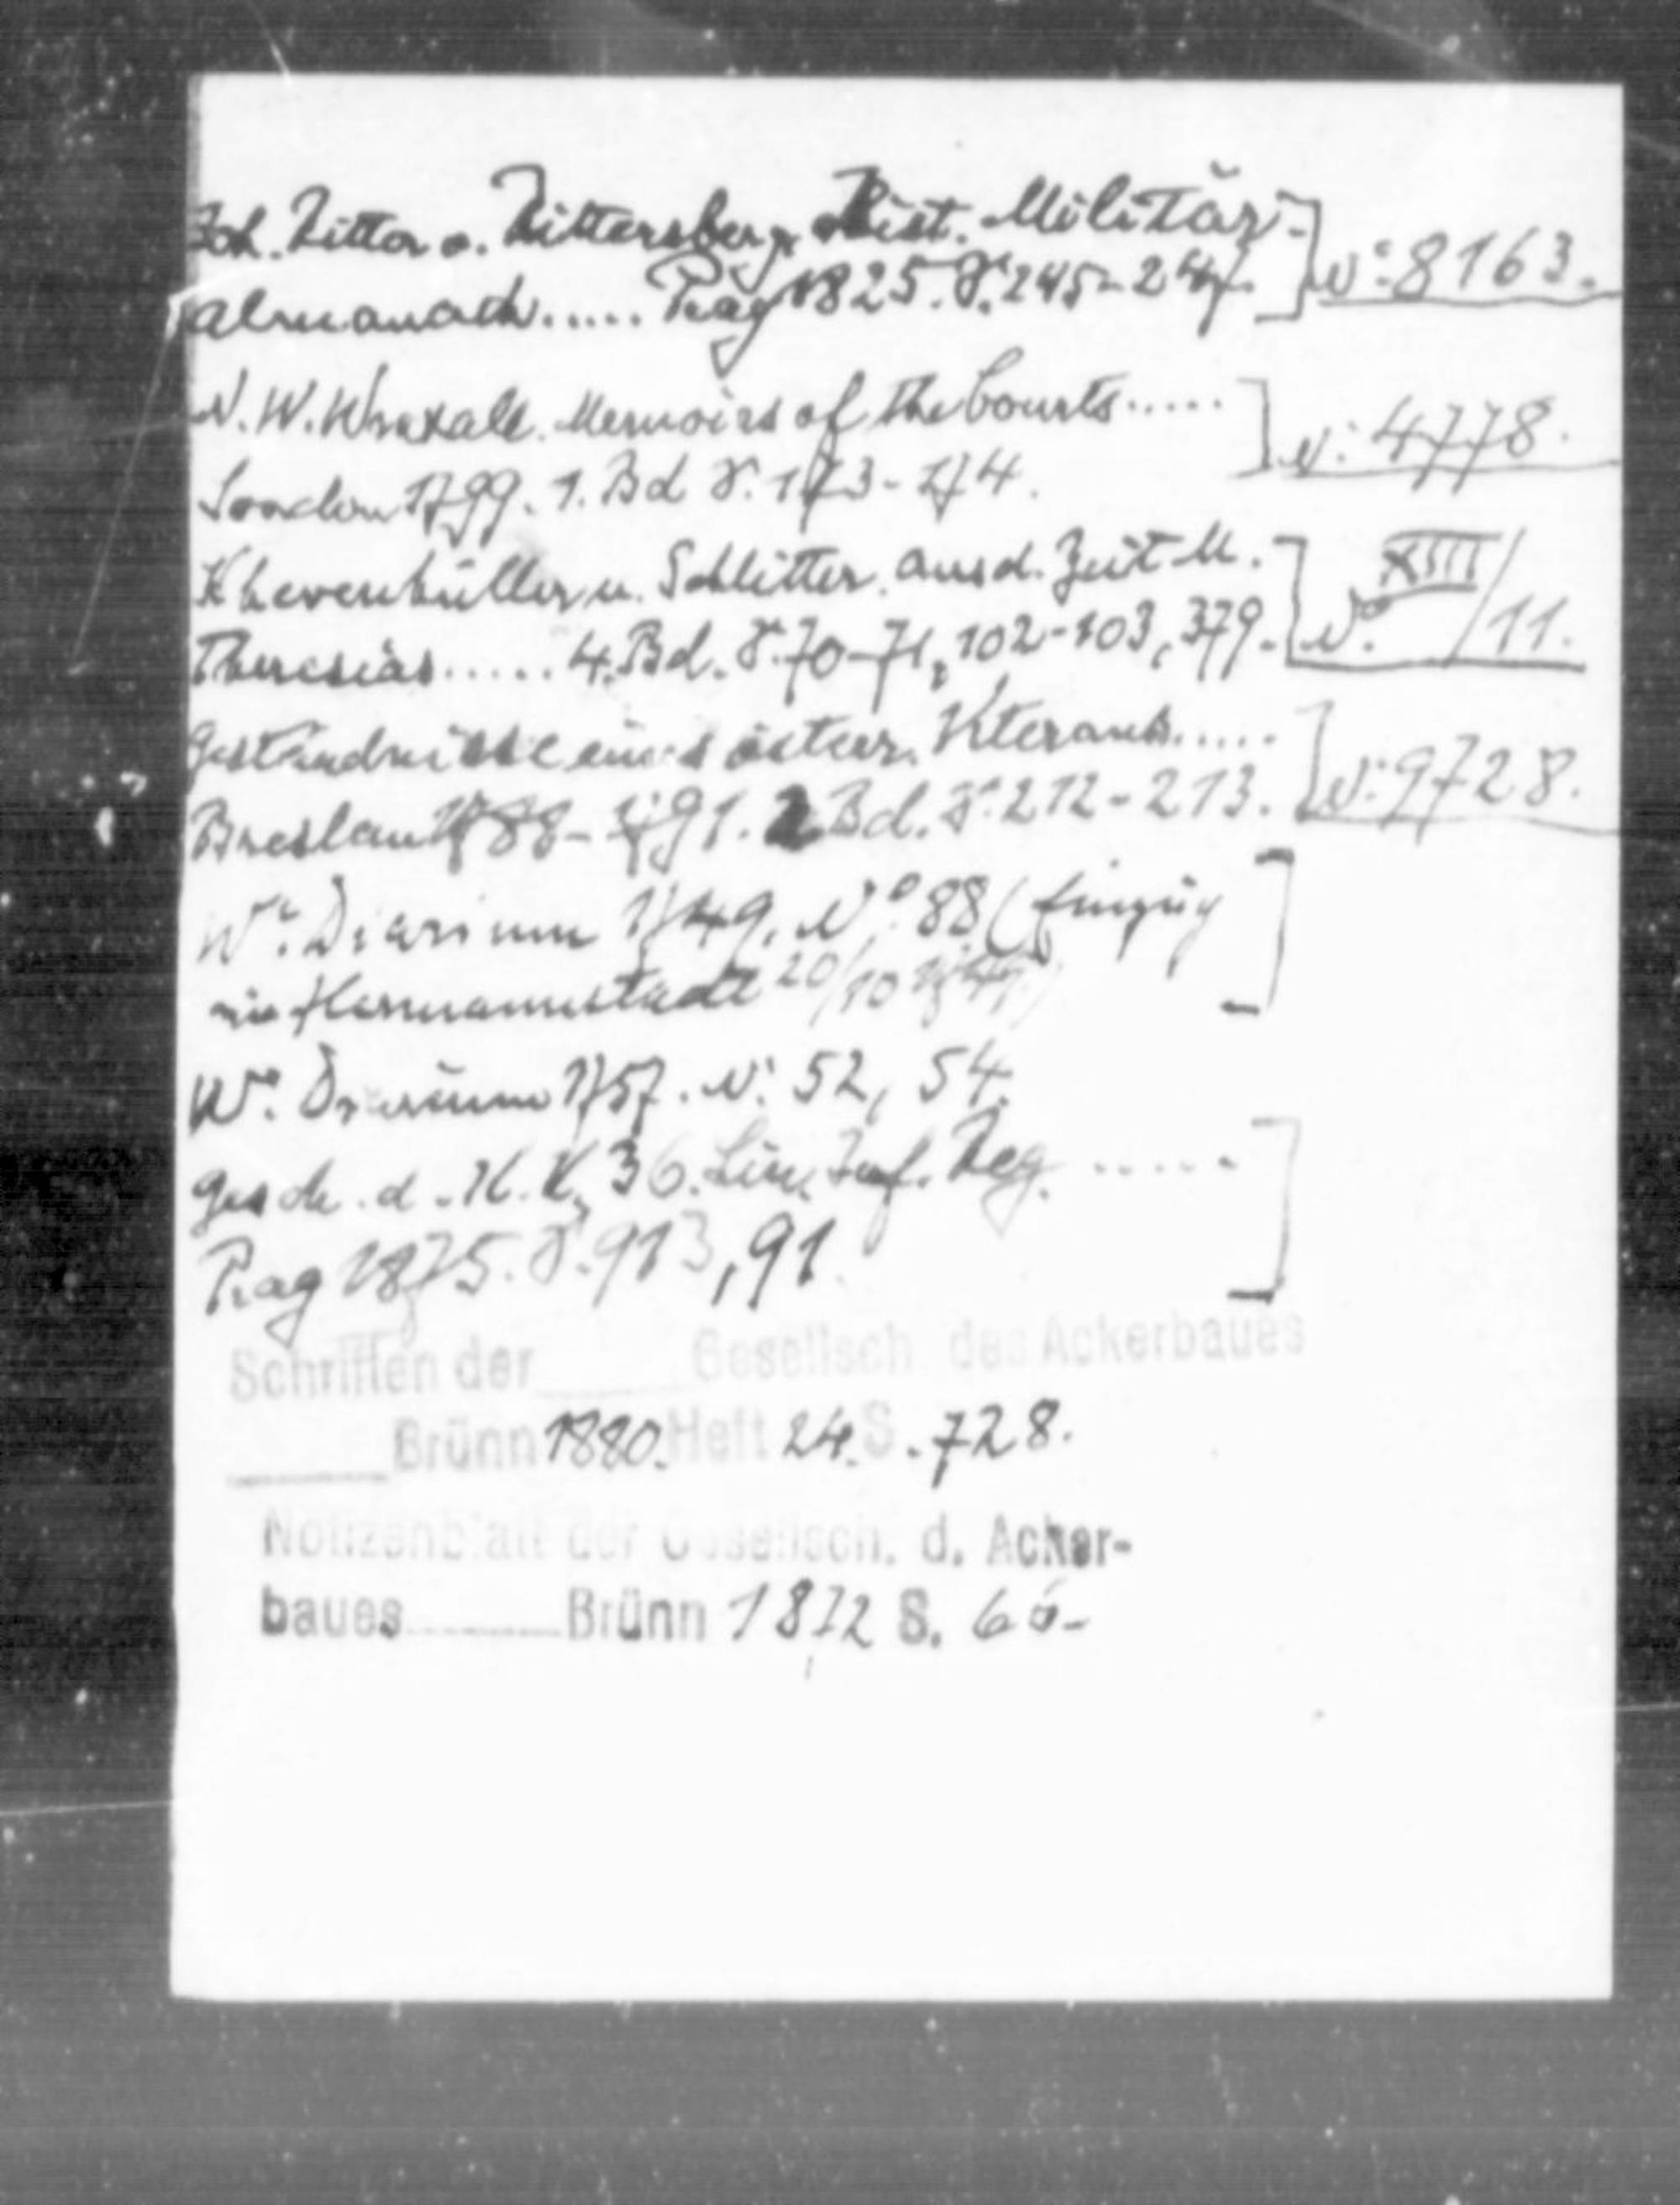 Joh. Ritter v. Rittersberg. Hist. Militär-] N: 8163.
Almanach..... Prag 1825. S. 245-247.
N. W. Wraxall. Memoirs of the Courts.....] N: 4778.
London 1799. 1. Bd S. 173-174.
Khevenhüller u. Schlitter. Aus d. Zeit M.] No. XIII/11.
Theresias..... 4. Bd. S. 70-71, 102-103, 379.
Geständnisse eines österr. Veterans.....] N: 9728.
Breslau 1788-1791. 2 Bd. S. 212-213.
Wr. Diarium 1749, No. 88 (Einzug
in Hermannstadt 20/10 1749)]
Wr. Diarium 1757. N: 52, 54.
Gesch. d. K. K. 36. Lin. Inf. Reg......
Prag 1875. S. 913, 91]
Schriften der Gesellsch des Ackerbaues
Brünn 1880. Heft 24. S. 728.
Notizenblatt der Gesellsch. d. Acker-
baues Brünn 1872 S.